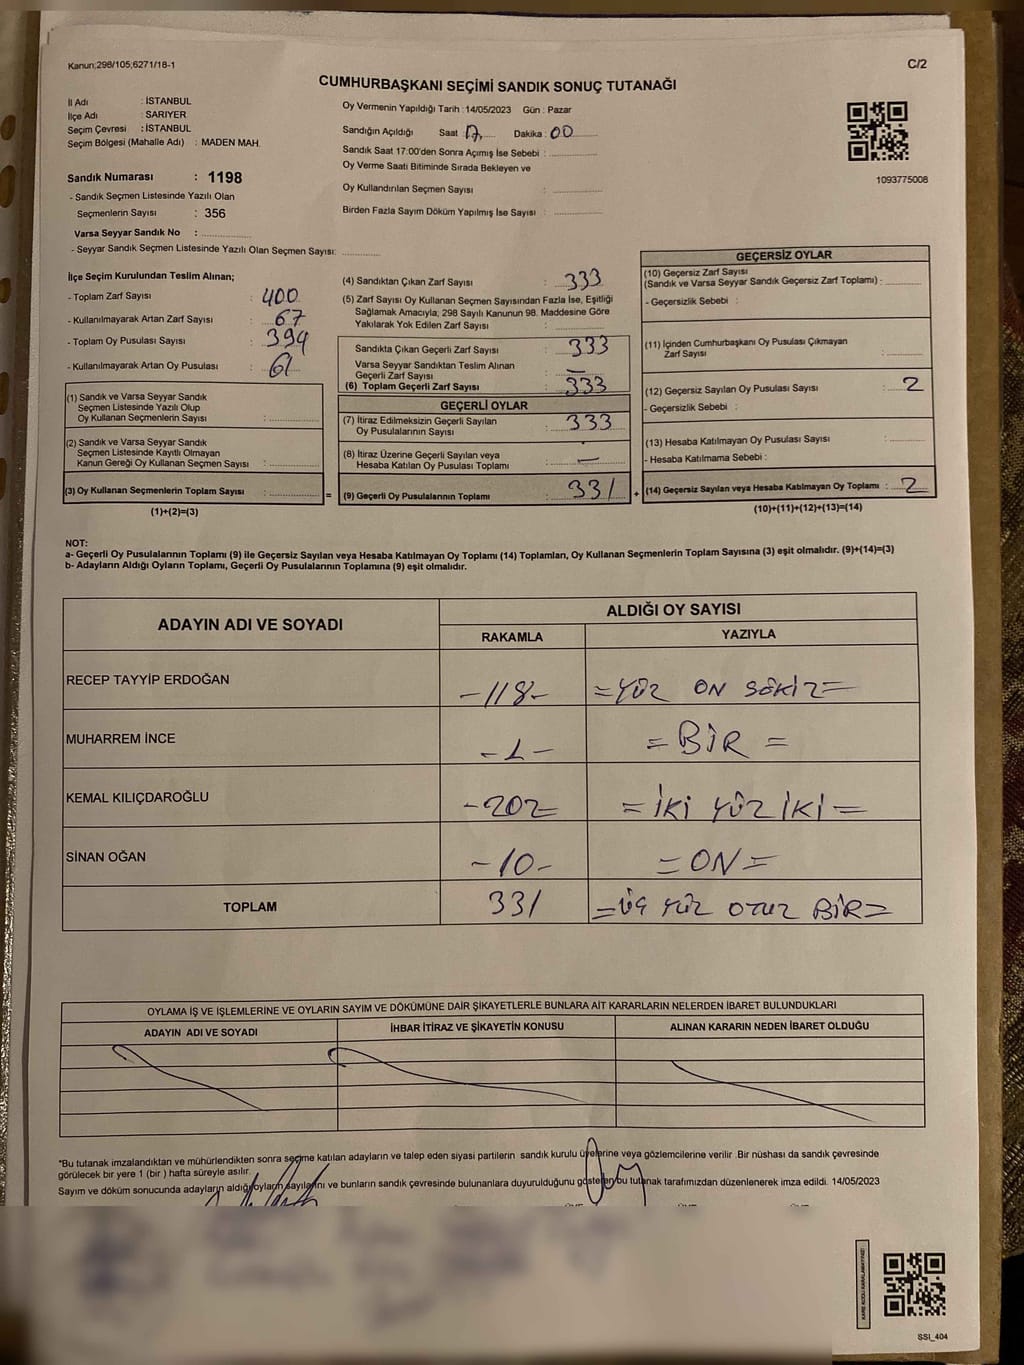 Kanun;298/105;6271/18-1
C/2
CUMHURBAŞKANI SEÇİMİ SANDIK SONUÇ TUTANAĞI
İl Adı : İSTANBUL
İlçe Adı : SARIYER
Seçim Çevresi : İSTANBUL
Seçim Bölgesi (Mahalle Adı) : MADEN MAH.
Sandık Numarası : 1198
- Sandık Seçmen Listesinde Yazılı Olan
Seçmenlerin Sayısı : 356
Varsa Seyyar Sandık No :
- Seyyar Sandık Seçmen Listesinde Yazılı Olan Seçmen Sayısı:
Oy Vermenin Yapıldığı Tarih : 14/05/2023 Gün : Pazar
Sandığın Açıldığı Saat : 17 Dakika : 00
Sandık Saat 17:00'den Sonra Açımış İse Sebebi :
Oy Verme Saati Bitiminde Sırada Bekleyen ve
Oy Kullandırılan Seçmen Sayısı :
Birden Fazla Sayım Döküm Yapılmış İse Sayısı :
1093775008
İlçe Seçim Kurulundan Teslim Alınan;
- Toplam Zarf Sayısı : 400
- Kullanılmayarak Artan Zarf Sayısı : 67
- Toplam Oy Pusulası Sayısı : 394
- Kullanılmayarak Artan Oy Pusulası : 61
(1) Sandık ve Varsa Seyyar Sandık
Seçmen Listesinde Yazılı Olup
Oy Kullanan Seçmenlerin Sayısı :
(2) Sandık ve Varsa Seyyar Sandık
Seçmen Listesinde Kayıtlı Olmayan
Kanun Gereği Oy Kullanan Seçmen Sayısı :
(3) Oy Kullanan Seçmenlerin Toplam Sayısı :
(1)+(2)=(3)
=
(4) Sandıktan Çıkan Zarf Sayısı : 333
(5) Zarf Sayısı Oy Kullanan Seçmen Sayısından Fazla İse, Eşitliği
Sağlamak Amacıyla, 298 Sayılı Kanunun 98. Maddesine Göre
Yakılarak Yok Edilen Zarf Sayısı :
Sandıkta Çıkan Geçerli Zarf Sayısı : 333
Varsa Seyyar Sandıktan Teslim Alınan
Geçerli Zarf Sayısı : —
(6) Toplam Geçerli Zarf Sayısı : 333
GEÇERLİ OYLAR
(7) İtiraz Edilmeksizin Geçerli Sayılan
Oy Pusulalarının Sayısı : 333
(8) İtiraz Üzerine Geçerli Sayılan veya
Hesaba Katılan Oy Pusulası Toplamı : —
(9) Geçerli Oy Pusulalarının Toplamı : 331
+
GEÇERSİZ OYLAR
(10) Geçersiz Zarf Sayısı
(Sandık ve Varsa Seyyar Sandık Geçersiz Zarf Toplamı) :
- Geçersizlik Sebebi :
(11) İçinden Cumhurbaşkanı Oy Pusulası Çıkmayan
Zarf Sayısı :
(12) Geçersiz Sayılan Oy Pusulası Sayısı : 2
- Geçersizlik Sebebi :
(13) Hesaba Katılmayan Oy Pusulası Sayısı :
- Hesaba Katılmama Sebebi :
(14) Geçersiz Sayılan veya Hesaba Katılmayan Oy Toplamı : 2
(10)+(11)+(12)+(13)=(14)
NOT:
a- Geçerli Oy Pusulalarının Toplamı (9) ile Geçersiz Sayılan veya Hesaba Katılmayan Oy Toplamı (14) Toplamları, Oy Kullanan Seçmenlerin Toplam Sayısına (3) eşit olmalıdır. (9)+(14)=(3)
b- Adayların Aldığı Oyların Toplamı, Geçerli Oy Pusulalarının Toplamına (9) eşit olmalıdır.
ADAYIN ADI VE SOYADI
ALDIĞI OY SAYISI
RAKAMLA YAZIYLA
RECEP TAYYİP ERDOĞAN -118- =YÜZ ON SEKİZ=
MUHARREM İNCE -1- =BİR=
KEMAL KILIÇDAROĞLU -202= =İKİ YÜZ İKİ=
SİNAN OĞAN -10- =ON=
TOPLAM 331 =ÜÇ YÜZ OTUZ BİR=
OYLAMA İŞ VE İŞLEMLERİNE VE OYLARIN SAYIM VE DÖKÜMÜNE DAİR ŞİKAYETLERLE BUNLARA AİT KARARLARIN NELERDEN İBARET BULUNDUKLARI
ADAYIN ADI VE SOYADI İHBAR İTİRAZ VE ŞİKAYETİN KONUSU ALINAN KARARIN NEDEN İBARET OLDUĞU
*Bu tutanak imzalandıktan ve mühürlendikten sonra seçime katılan adayların ve talep eden siyasi partilerin sandık kurulu üyelerine veya gözlemcilerine verilir .Bir nüshası da sandık çevresinde
görülecek bir yere 1 (bir ) hafta süreyle asılır.
Sayım ve döküm sonucunda adayların aldığı oyların sayılarını ve bunların sandık çevresinde bulunanlara duyurulduğunu gösteren bu tutanak tarafımızdan düzenlenerek imza edildi. 14/05/2023
SSI_404